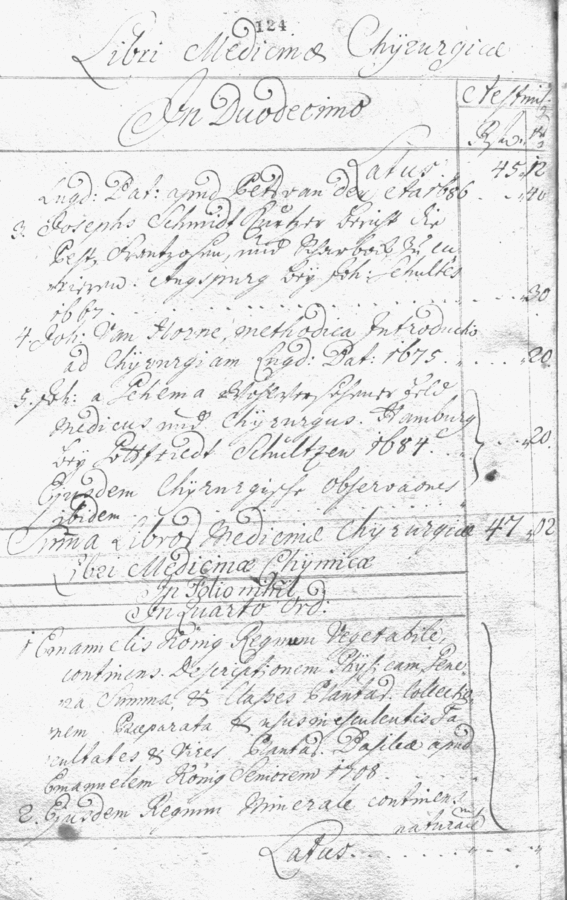 124
Libri Medicinæ Chÿrurgicæ
In Duodecimo
Latus. 45. 12
Lugd: Bat: apud Petr van der Aa 1686 40
3. Josephs Schmidt Kurtzer bericht die
Pest, Frantzosen, und Scharbock zu cu
rieren: Augspurg beÿ Joh: Schultes
1667. 30
4 Joh: Van Horne, methodica Introductio
ad Chÿrurgiam Lugd: Bat: 1675. 20
5. Joh: a Schema feld
Medicus und Chÿrurgus. Hamburg
beÿ Gottfriedt Schultzen 1684. 20.
Ejusdem Chÿrurgische Observationes
ibidem
Suma Libros Medicinæ Chÿrurgicæ 47 02
Libri Medicinæ Chymicæ
In Folio nihil
In Quarto Ord:
1 Emanuelis König Regnum Vegetabile,
continens Descriptionem Phÿsicam Gene
ra Summa, & Classes Plantar. Collectio
nem Præparata & usus esculentis Fa
cultates & Vires Plantar. Basileæ apud
Emanuelem König Seniorem 1708.
2. Ejusdem Regnum Minerale continens
Latus